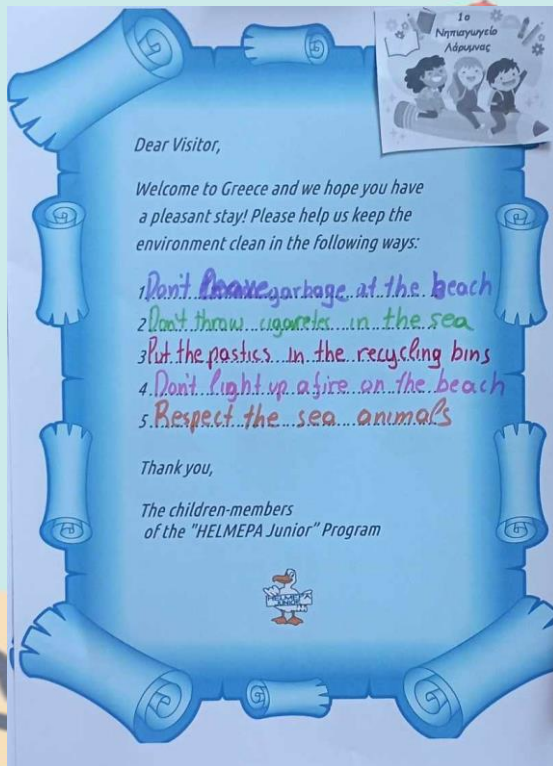 1ο
Νηπιαγωγείο
Λάρυμνας
Dear Visitor,
Welcome to Greece and we hope you have
a pleasant stay! Please help us keep the
environment clean in the following ways:
1. Don't leave garbage at the beach
2. Don't throw cigaretes in the sea
3. Put the pastics in the recycling bins
4. Don't light up a fire on the beach
5. Respect the sea animals
Thank you,
The children-members
of the "HELMEPA Junior" Program
HELMEPA
JUNIOR